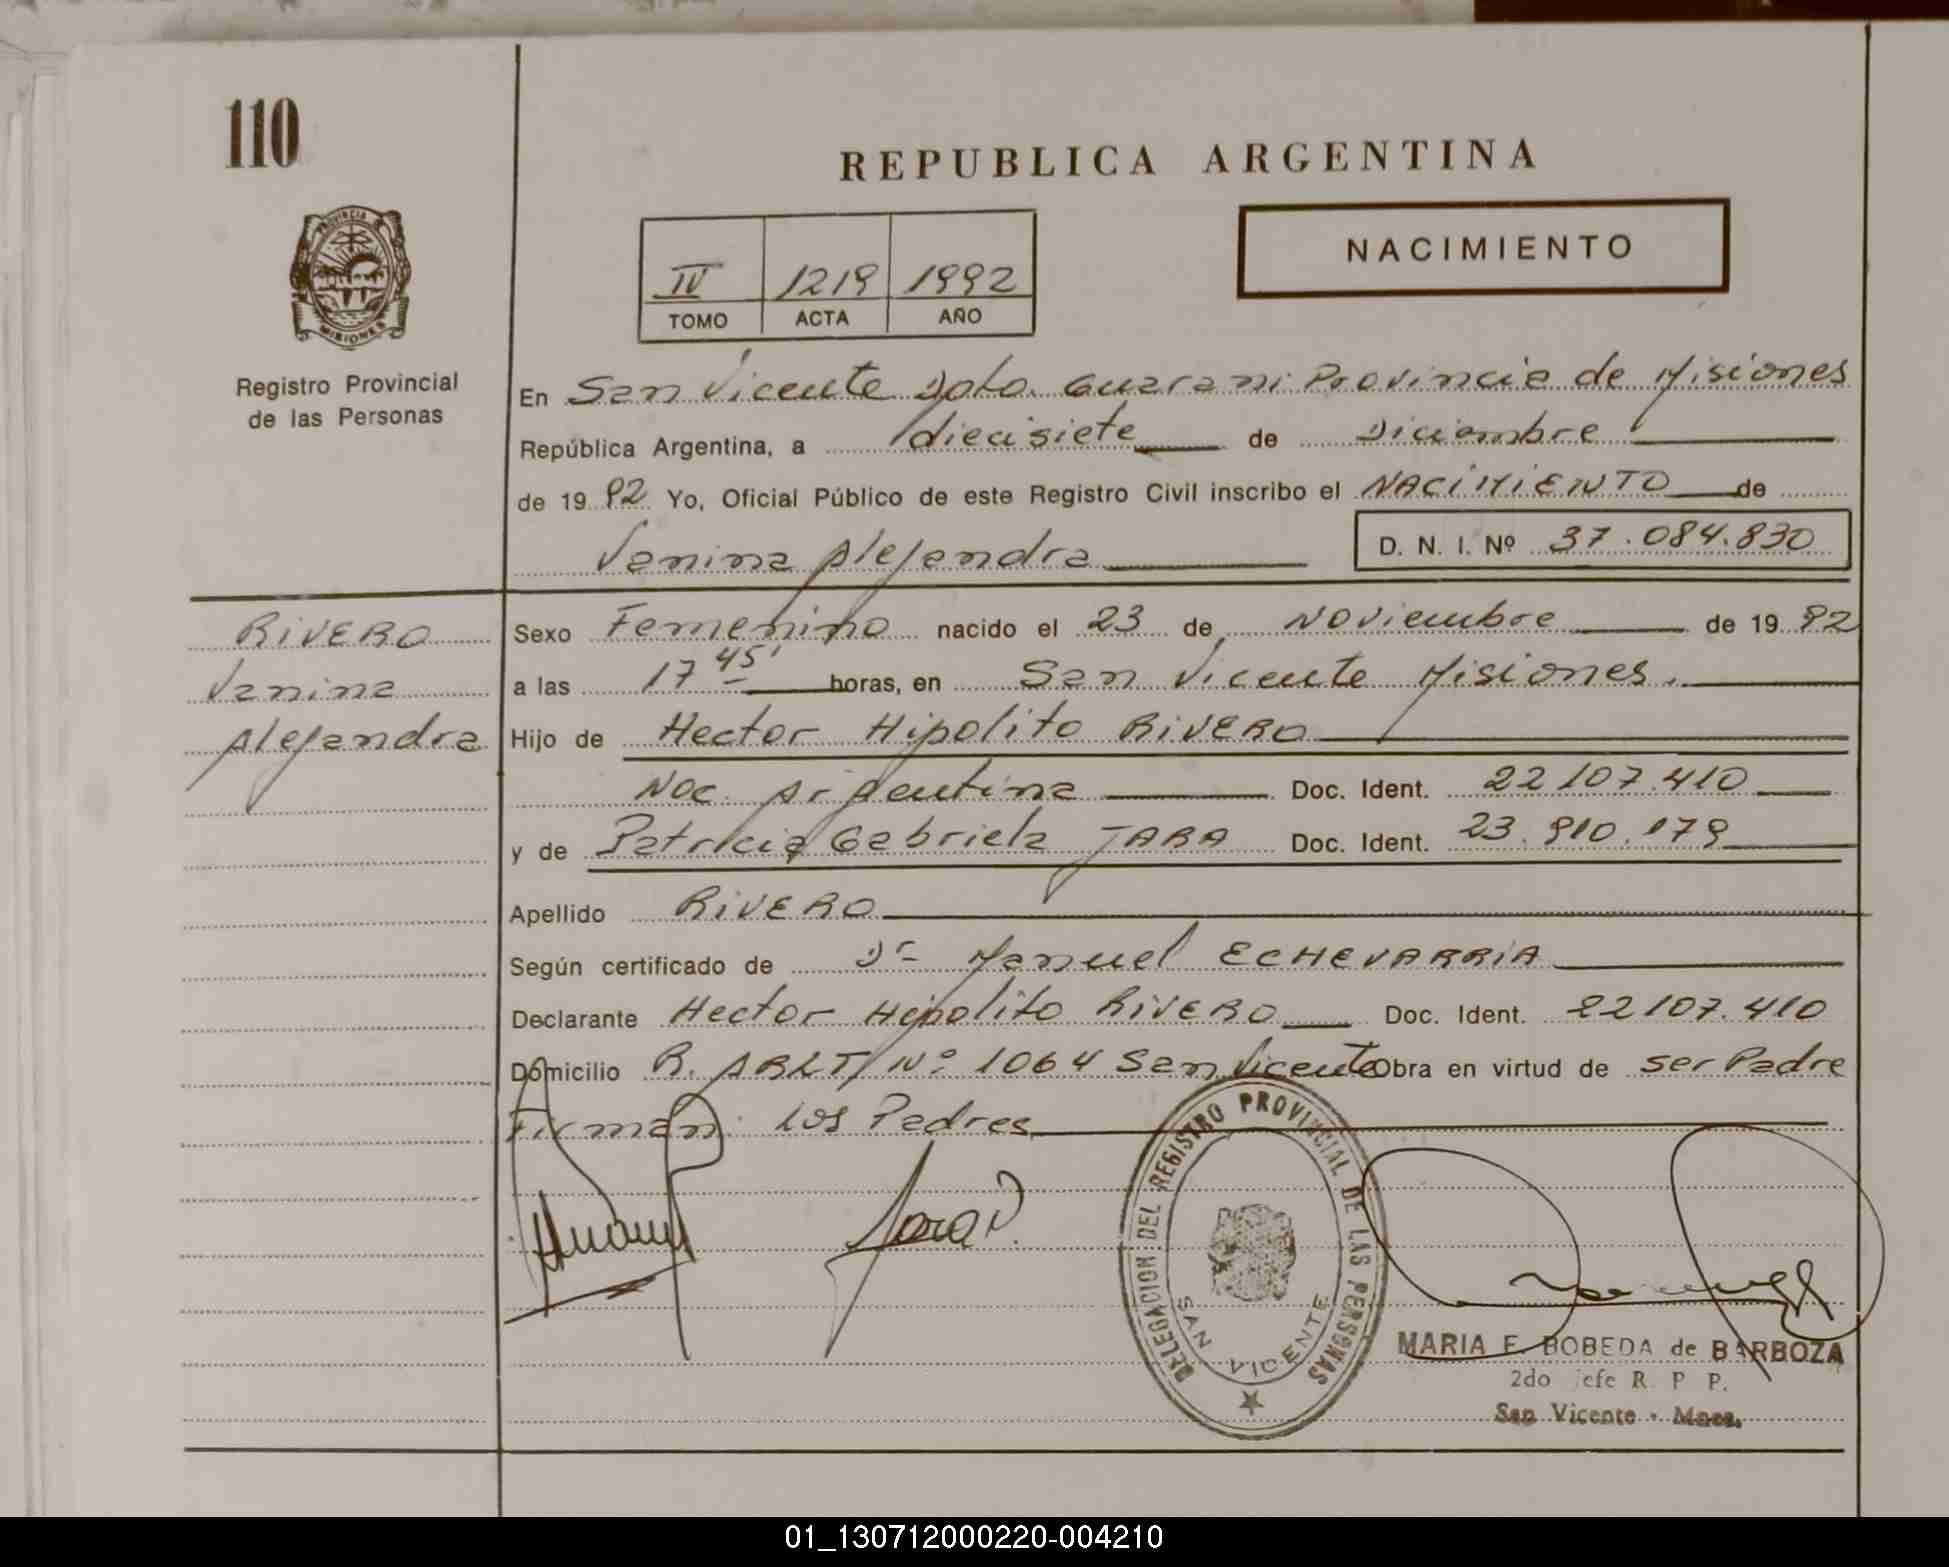 110
REPUBLICA ARGENTINA
PROVINCIA DE
MISIONES
Registro Provincial
de las Personas
NACIMIENTO
IV 1219 1992
TOMO ACTA AÑO
En San Vicente Dpto. Guarani Provincia de Misiones
República Argentina, a diecisiete de Diciembre
de 1992 Yo, Oficial Público de este Registro Civil inscribo el NACIMIENTO de
Vanina Alejandra D. N. I. Nº 37.084.830
RIVERO
Vanina
Alejandra
Sexo Femenino nacido el 23 de Noviembre de 1992
a las 17 45' horas, en San Vicente Misiones.
Hijo de Hector Hipolito RIVERO
Nac. Argentina Doc. Ident. 22107.410
y de Patricia Gabriela JARA Doc. Ident. 23.910.179
Apellido RIVERO
Según certificado de Dr Manuel ECHEVARRIA
Declarante Hector Hipolito RIVERO Doc. Ident. 22107.410
Domicilio R. ARLT Nº 1064 San Vicente Obra en virtud de ser Padre
Firman: los Padres
DELEGACION DEL REGISTRO PROVINCIAL DE LAS PERSONAS
SAN VICENTE
MARIA E. BOBEDA de BARBOZA
2do jefe R. P. P.
San Vicente - Mnes.
01_130712000220-004210